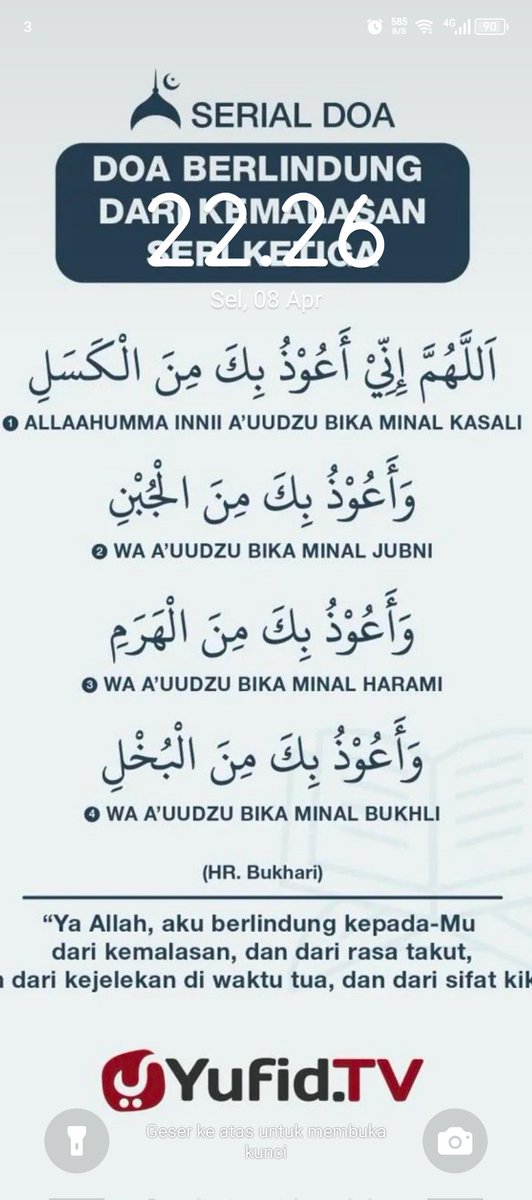 3
585
B/S
4G
90
SERIAL DOA
DOA BERLINDUNG
DARI KEMALASAN
SERI KETIGA
22.26
Sel, 08 Apr
اَللَّهُمَّ إِنِّيْ أَعُوْذُ بِكَ مِنَ الْكَسَلِ
1 ALLAAHUMMA INNII A'UUDZU BIKA MINAL KASALI
وَأَعُوْذُ بِكَ مِنَ الْجُبْنِ
2 WA A'UUDZU BIKA MINAL JUBNI
وَأَعُوْذُ بِكَ مِنَ الْهَرَمِ
3 WA A'UUDZU BIKA MINAL HARAMI
وَأَعُوْذُ بِكَ مِنَ الْبُخْلِ
4 WA A'UUDZU BIKA MINAL BUKHLI
(HR. Bukhari)
“Ya Allah, aku berlindung kepada-Mu
dari kemalasan, dan dari rasa takut,
n dari kejelekan di waktu tua, dan dari sifat kik
YUFID.TV
Geser ke atas untuk membuka
kunci